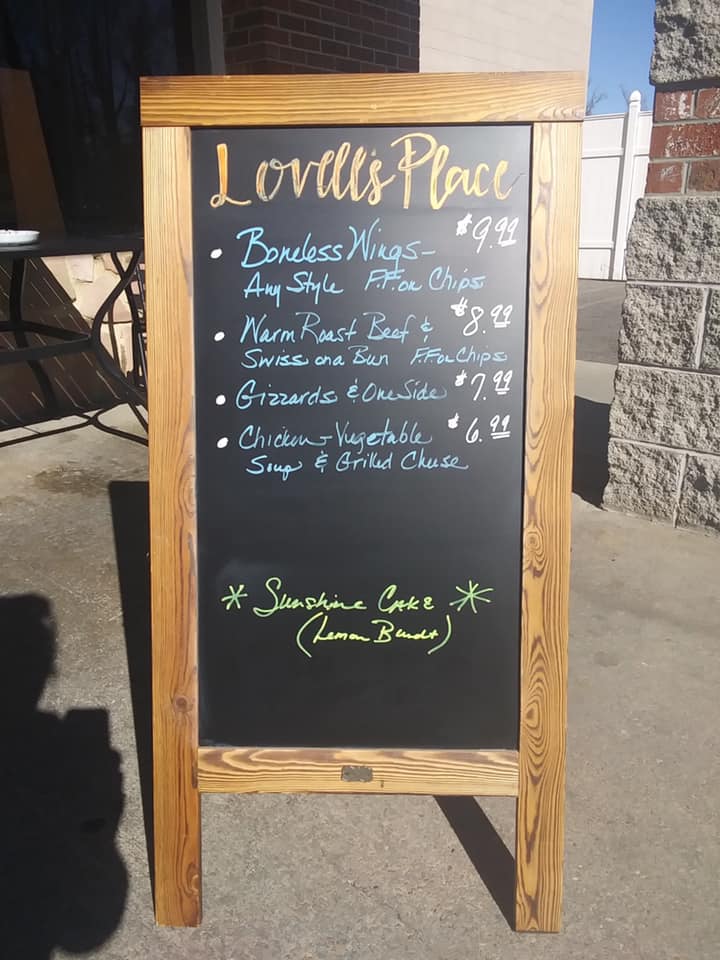 Lovell's Place
• Boneless Wings- $9.99
Any Style F.F. or Chips
• Warm Roast Beef & $8.99
Swiss on a Bun F.F. or Chips
• Gizzards & One Side $7.99
• Chicken-Vegetable $6.99
Soup & Grilled Cheese
* Sunshine Cake *
(Lemon Bundt)